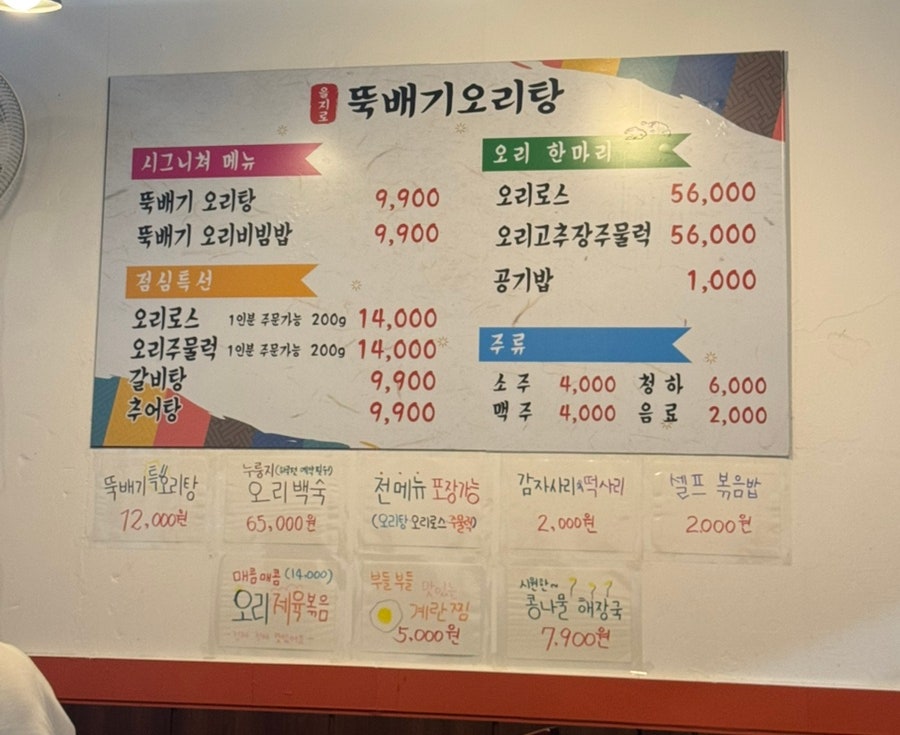 을지로 뚝배기오리탕
시그니쳐 메뉴
뚝배기 오리탕 9,900
뚝배기 오리비빔밥 9,900
점심특선
오리로스 1인분 주문가능 200g 14,000
오리주물럭 1인분 주문가능 200g 14,000
갈비탕 9,900
추어탕 9,900
오리 한마리
오리로스 56,000
오리고추장주물럭 56,000
공기밥 1,000
주류
소주 4,000 청하 6,000
맥주 4,000 음료 2,000
뚝배기 특 오리탕
12,000원
누룽지
오리백숙
65,000원
전메뉴 포장가능
(오리탕 오리로스 주물럭)
감자사리&떡사리
2,000원
셀프 볶음밥
2000원
매콤매콤 (14,000)
오리제육볶음
부들부들 맛있는
계란찜
5,000원
시원한~ ???
콩나물 해장국
7,900원